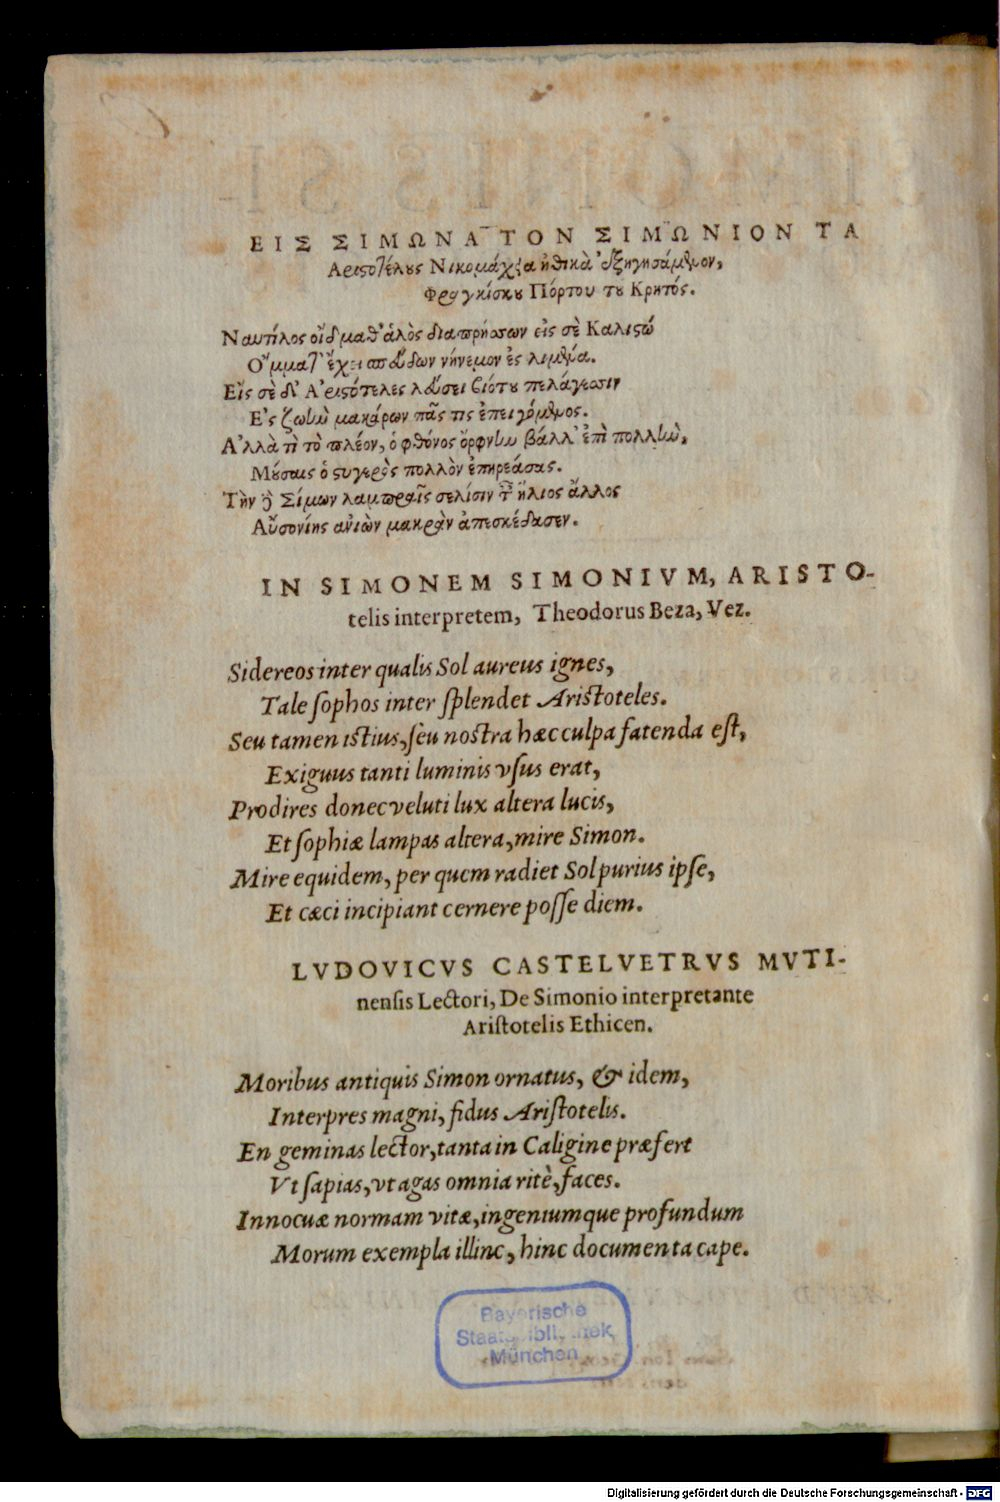 ΕΙΣ ΣΙΜΩΝΑ ΤΟΝ ΣΙΜΩΝΙΟΝ ΤΑ
Αριστοτέλους Νικομάχεια ἠθικὰ ἐξηγησάμενον,
Φραγκίσκου Πόρτου τοῦ Κρητός.
Ναυτίλος οἶδμαθ᾽ ἁλὸς διαπρήσσων εἰς σὲ Καλιστώ
Ὄμματ᾽ ἔχει σπεύδων νήνεμον ἐς λιμένα.
Εἰς σὲ δ᾽ Ἀριστότελες λεύσει βιότου πελάγεσσιν
Ἐς ζωὴν μακάρων πᾶς τις ἐπειγόμενος.
Ἀλλὰ τί τὸ πλέον, ὁ φθόνος ὄρφνην βάλλ᾽ ἐπὶ πολλὴν,
Μούσαις ὁ στυγερὸς πολλὸν ἐπηρεάσας.
Τὴν δὲ Σίμων λαμπραῖς σελίσιν ἠέλιος ἄλλος
Αὐσονίης ἀνιὼν μακρὰν ἀπεσκέδασεν.
IN SIMONEM SIMONIVM, ARISTO-
telis interpretem, Theodorus Beza, Vez.
Sidereos inter qualis Sol aureus ignes,
Tale sophos inter splendet Aristoteles.
Seu tamen istius, seu nostra hæc culpa fatenda est,
Exiguus tanti luminis vsus erat,
Prodires donec veluti lux altera lucis,
Et sophiæ lampas altera, mire Simon.
Mire equidem, per quem radiet Sol purius ipse,
Et cæci incipiant cernere posse diem.
LVDOVICVS CASTELVETRVS MVTI-
nensis Lectori, De Simonio interpretante
Aristotelis Ethicen.
Moribus antiquis Simon ornatus, & idem,
Interpres magni, fidus Aristotelis.
En geminas lector, tanta in Caligine præfert
Vt sapias, vt agas omnia ritè, faces.
Innocuæ normam vitæ, ingeniumque profundum
Morum exempla illinc, hinc documenta cape.
Bayerische
Staatsbibliothek
München
Digitalisierung gefördert durch die Deutsche Forschungsgemeinschaft - DFG